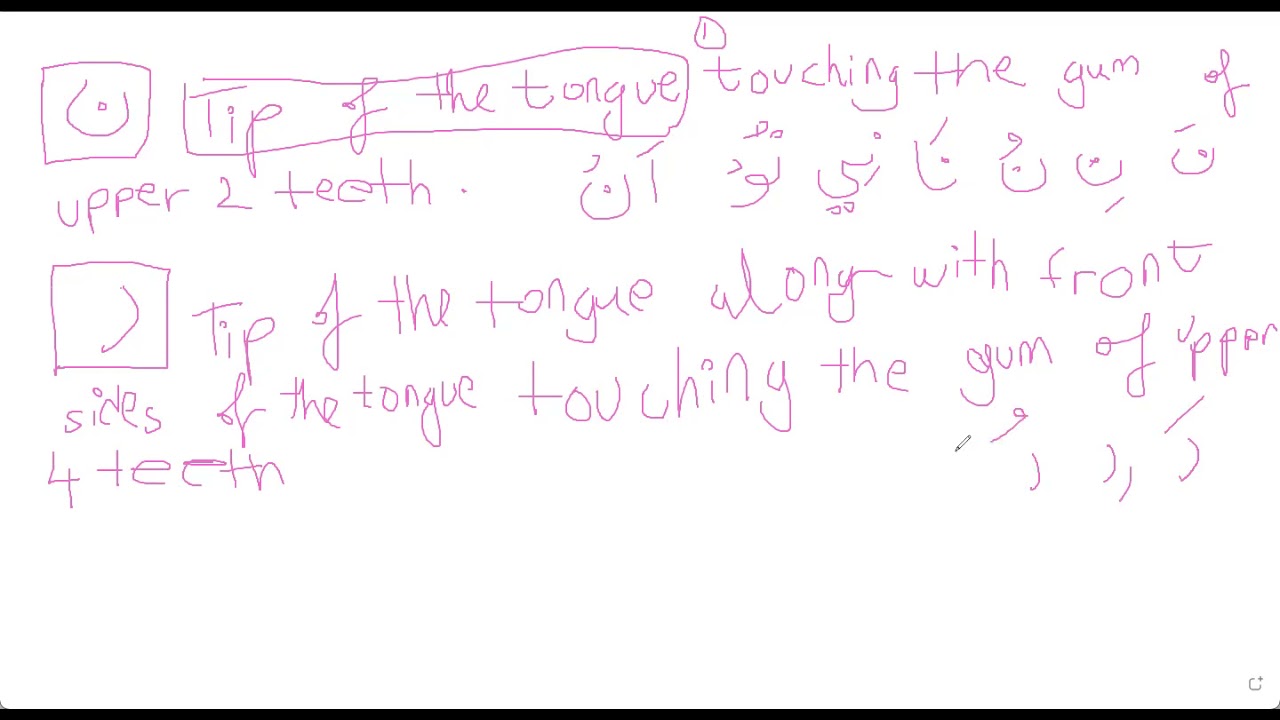 ①
ن Tip of the tongue touching the gum of
upper 2 teeth . نَ نِ نُ نَا نِي نُو اَنْ
ر Tip of the tongue along with front
sides of the tongue touching the gum of upper
4 teeth رَ رِ رُ